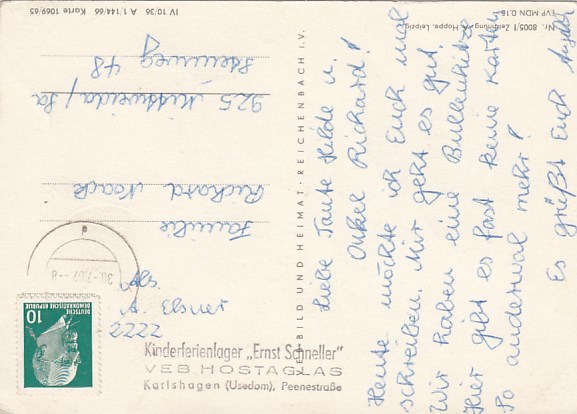 Liebe Tante Hilde u.
Onkel Richard!
Heute möchte ich Euch mal
schreiben. Mir geht es gut.
Wir haben eine Bullenhitze
Hier gibt es fast keine Karten
anderwal mehr!
Es grüßt Euch
VEB BILD UND HEIMAT · REICHENBACH i. V.
Kinderferienlager „Ernst Schneller"
VEB HOSTAGLAS
Karlshagen (Usedom), Peenestraße
2222
Familie
Richard Noack
925 Mittweida / Sa
Steinweg 48
DEUTSCHE DEMOKRATISCHE REPUBLIK
10
IV 10/36 A 1/144/66 Karte 1069/65
Nr. 8005/1 Zeichnung: Hoppe, Leipzig
EVP MDN 0,15